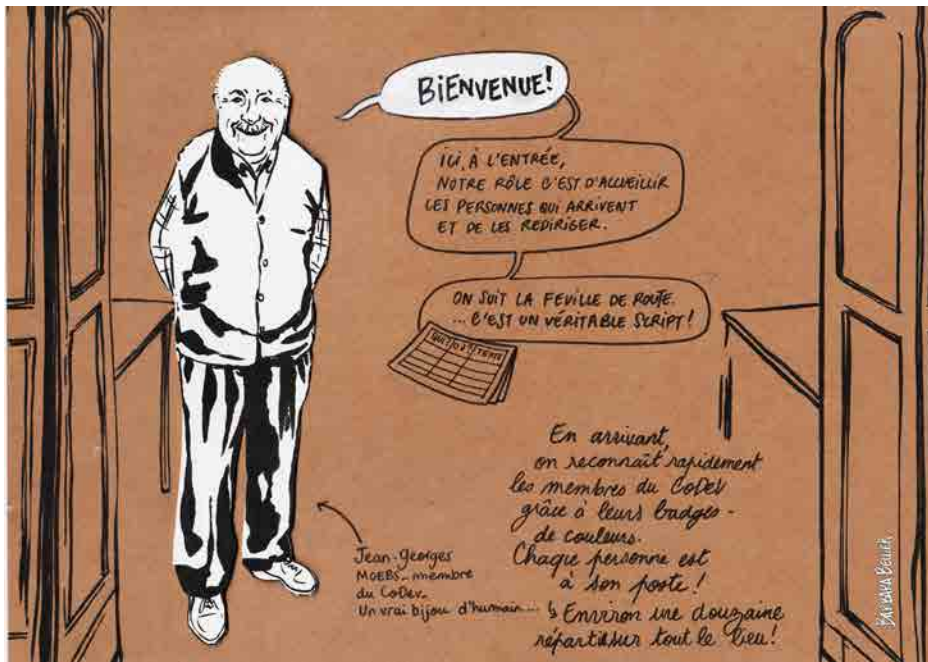 BiENVENUE!
ICI, À L'ENTRÉE,
NOTRE RÔLE C'EST D'ACCUEILLIR
LES PERSONNES QUI ARRIVENT
ET DE LES REDIRIGER.
ON SUIT LA FEUILLE DE ROUTE.
... C'EST UN VÉRITABLE SCRIPT!
QUI? OÙ? TEMPS
En arrivant,
on reconnaît rapidement
les membres du CoDev
grâce à leurs badges-
de couleurs.
Chaque personne est
à son poste!
↳ Environ une douzaine
répartis sur tout le lieu!
Jean-Georges
MOEBS_ membre
du CoDev_
Un vrai bijou d'humain...
BARBARA BELLIER